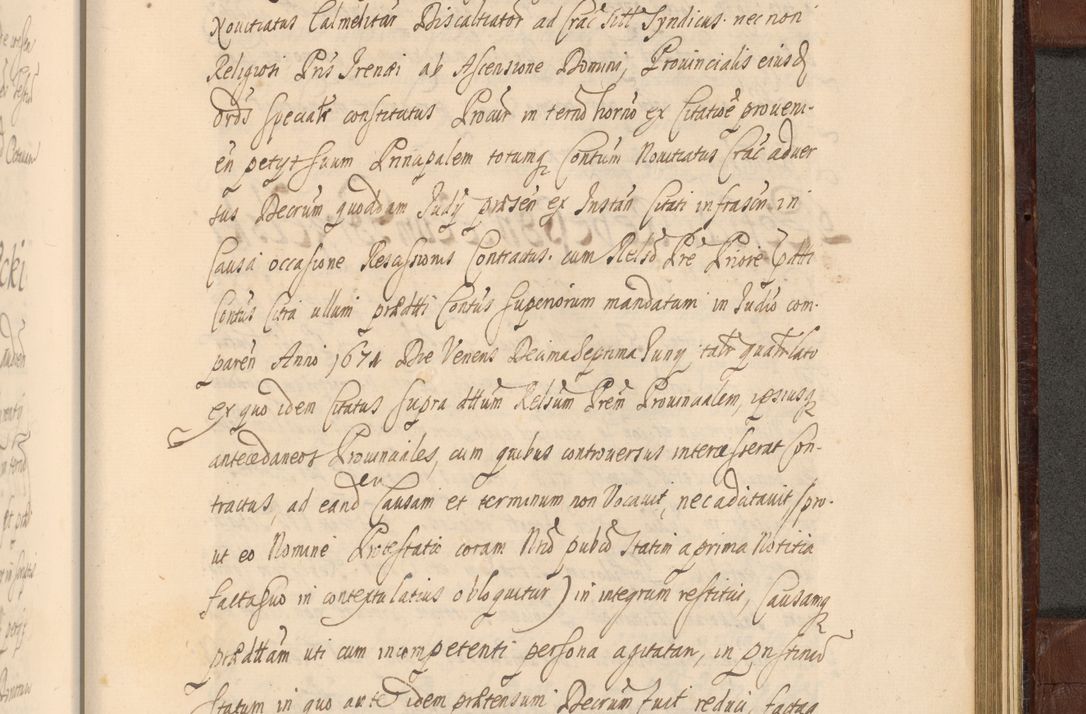 Novitiatus Calmelitar Discaltiator ad Crac Sitt Syndicus. nec non
Religiosi Pris Irenæi ab Ascensione Domini, Provincialis eiusd
Ords specialr constitutus Procur in termo horno ex Citatioe proveni-
en petyt suum Principalem totumq Contum Novitiatus Crac adver
sus Decrum quoddam Judy præsen ex Instan Citati infrascri in
Causa occasione Rescissionis Contractus. cum Relso Pre Priore
Contus Citra ullum prædtti Contus Superiorum mandatum in Judio com-
paren Anni 1671 Die Veneris Decima Septima Juny
ex quo idem Citatus supra dttum Relsum Prem Provincialem, ipsiusq
antecedaneos Provinciales, cum quibus controversus intercesserat Con-
tractus, ad eand Causam et terminum non Vocavit, nec adcitavit (pro-
ut eo Nomine Protestatio coram Ntro publo Statim a prima Notitia
facta suo in contextu latius obloquitur) in integrum restitui, Causamq
prædttam uti cum incompetenti persona agitatam, in pristinum
statum in quo ante idem prætensum Decrum fuit reduci, factaq